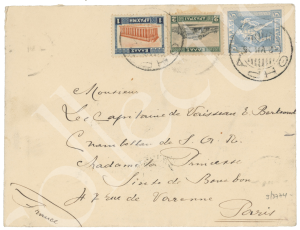 Monsieur
Les Capitaine de Vaisseau E. Bertout
Chambellan de S. A. R.
Madame la Princesse
Sixte de Bourbon
47 rue de Varenne
Paris
France